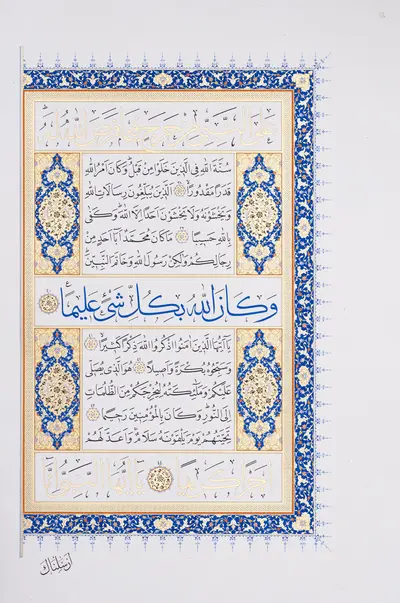 سُنَّةَ اللهِ فِي الَّذِينَ خَلَوْا مِنْ قَبْلُ وَكَانَ اَمْرُ اللهِ
قَدَرًا مَقْدُورًا الَّذِينَ يُبَلِّغُونَ رِسَالَاتِ اللهِ
وَيَخْشَوْنَهُ وَلَا يَخْشَوْنَ اَحَدًا اِلَّا اللهَ وَكَفَى
بِاللهِ حَسِيبًا مَا كَانَ مُحَمَّدٌ اَبَا اَحَدٍ مِنْ
رِجَالِكُمْ وَلٰكِنْ رَسُولَ اللهِ وَخَاتَمَ النَّبِيِّينَ
وَكَانَ اللهُ بِكُلِّ شَىْءٍ عَلِيمًا
يَا اَيُّهَا الَّذِينَ اٰمَنُوا اذْكُرُوا اللهَ ذِكْرًا كَثِيرًا
وَسَبِّحُوهُ بُكْرَةً وَاَصِيلًا هُوَ الَّذِي يُصَلِّي
عَلَيْكُمْ وَمَلٰئِكَتُهُ لِيُخْرِجَكُمْ مِنَ الظُّلُمَاتِ
اِلَى النُّورِ وَكَانَ بِالْمُؤْمِنِينَ رَحِيمًا
تَحِيَّتُهُمْ يَوْمَ يَلْقَوْنَهُ سَلَامٌ وَاَعَدَّ لَهُمْ
أَرْسَلْنَاكَ